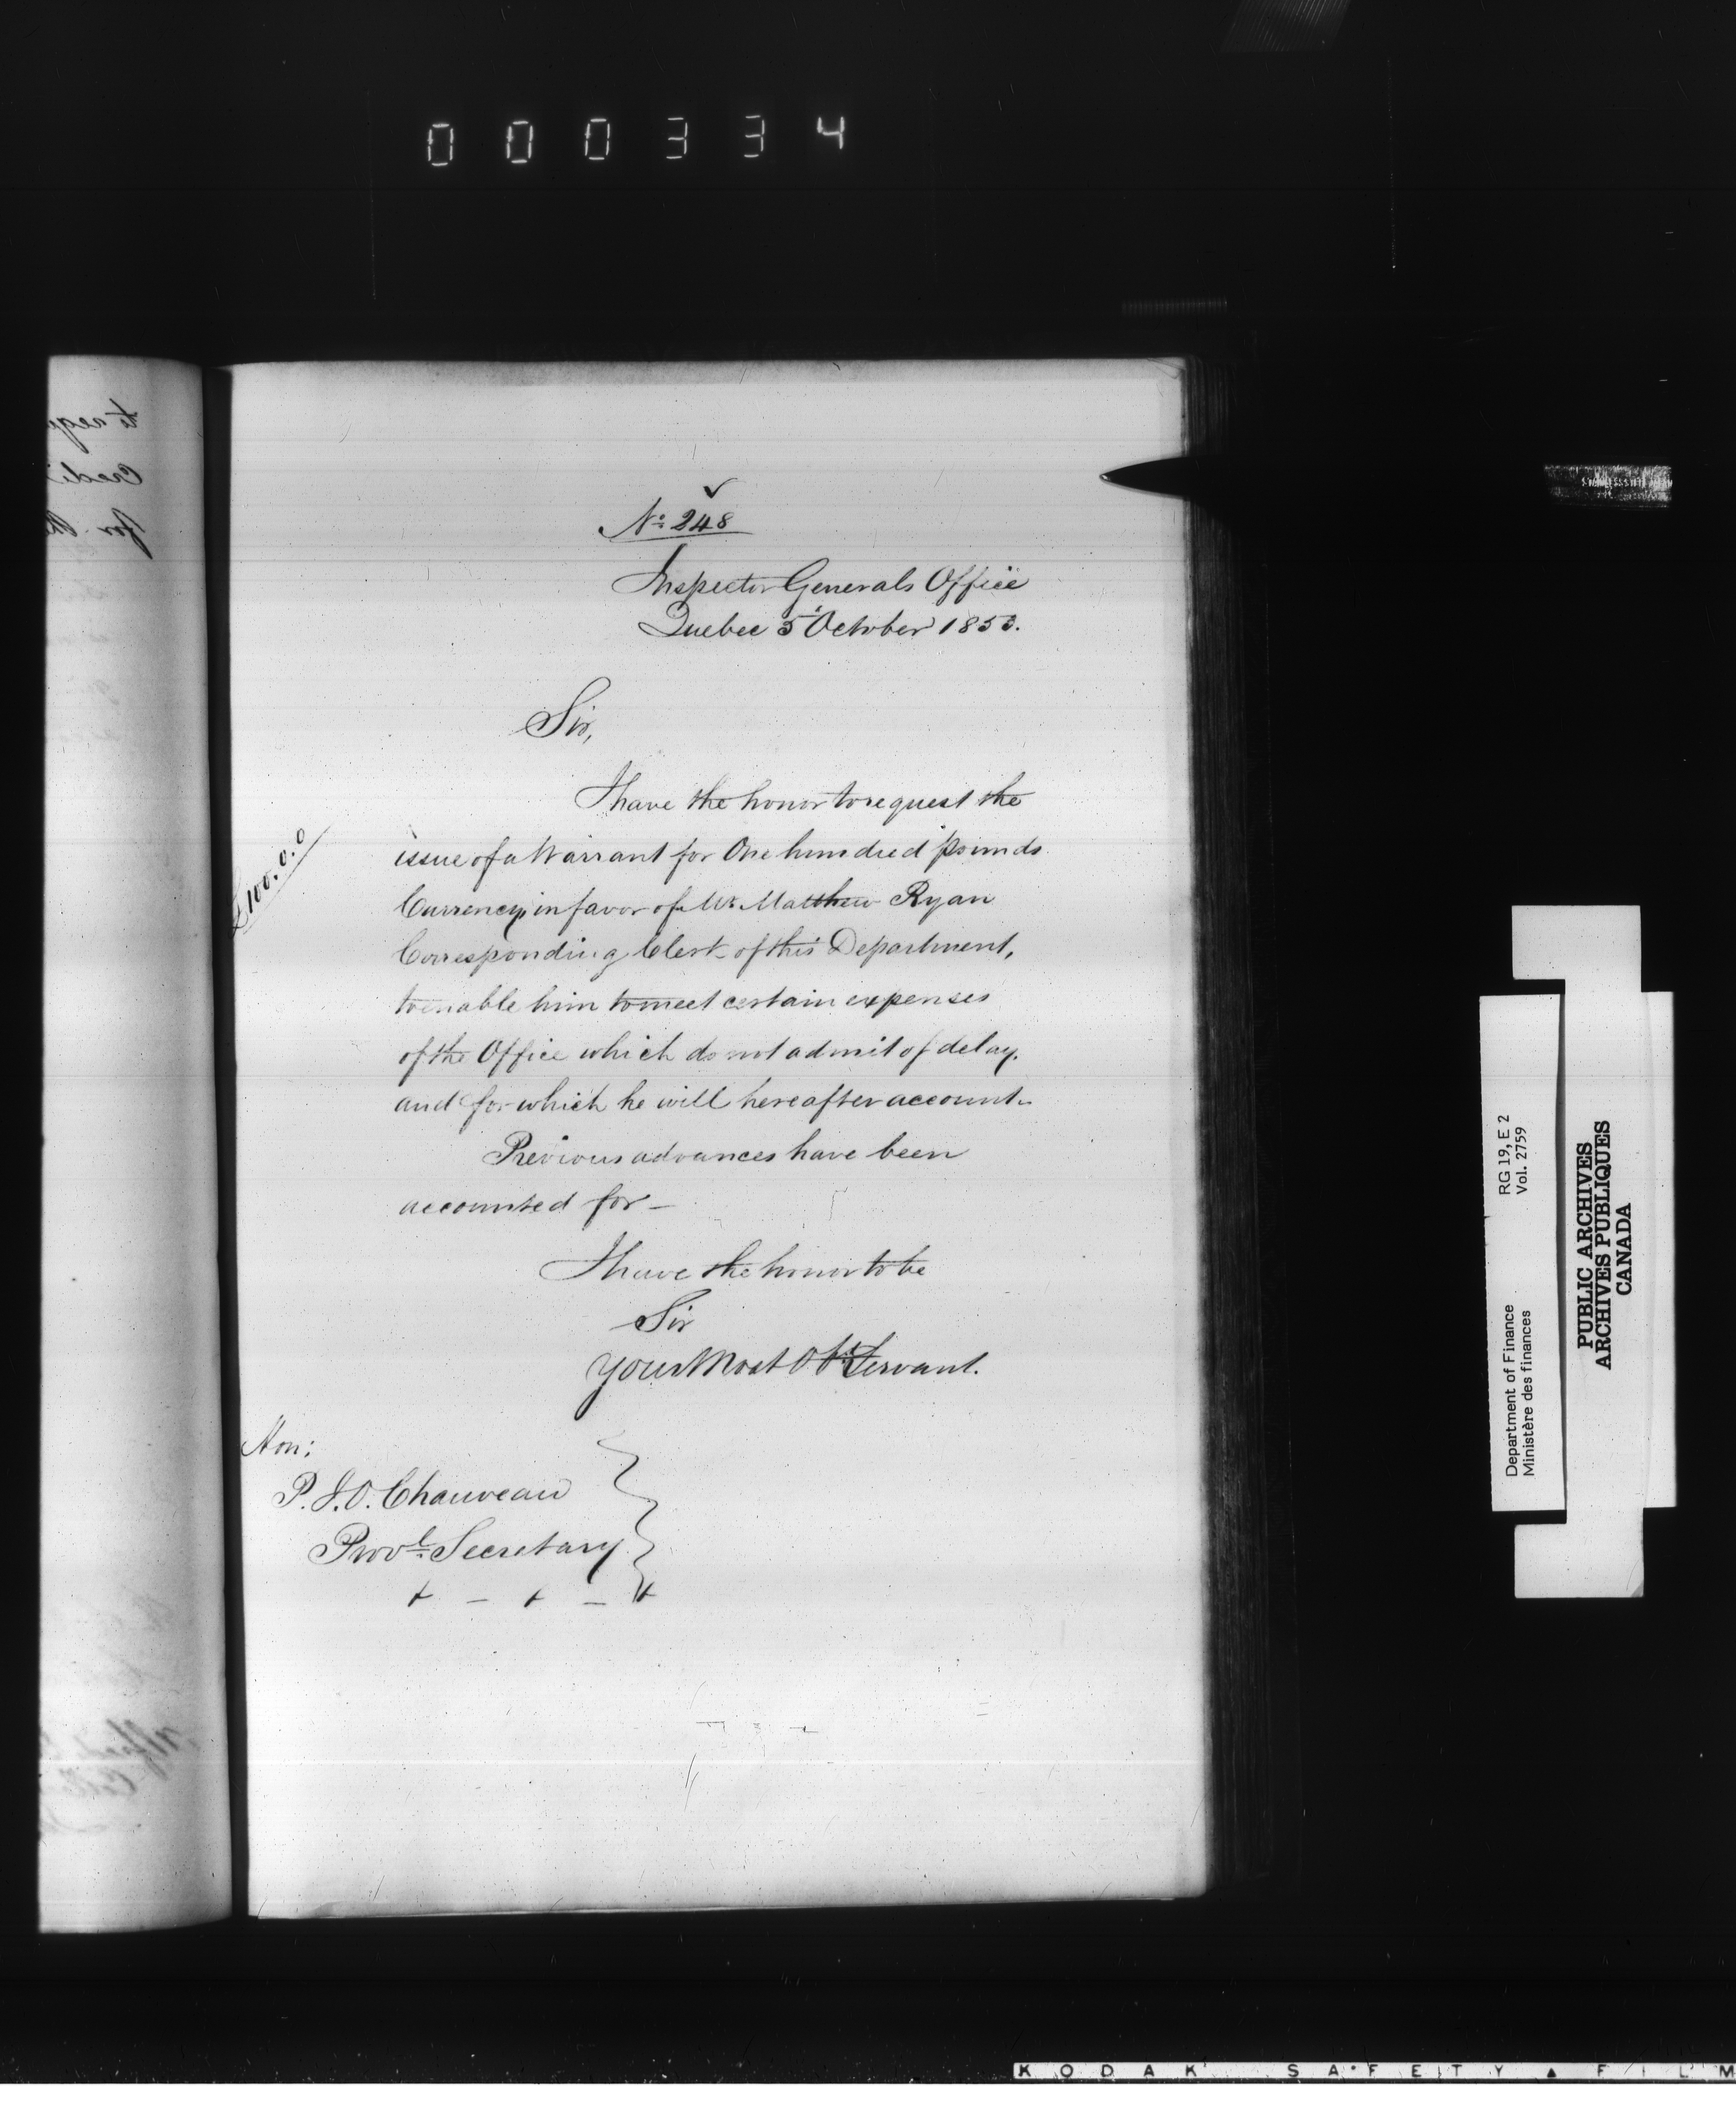 000334
to requ
Credi
for the
No 248
Inspector Generals Office
Quebec 5 October 1853.
Sir,
I have the honor to request the
issue of a Warrant for One hundred pounds
£100.0.0
Currency, in favor of Mr. Matthew Ryan
Corresponding Clerk of this Department,
to enable him to meet certain expenses
of the Office which do not admit of delay,
and for which he will hereafter account.
Previous advances have been
accounted for –
I have the honor to be
Sir
your Most Obt Servant.
Hon:
P. J. O. Chauveau
Provl. Secretary
Department of Finance RG 19, E 2
Ministère des finances Vol. 2759
PUBLIC ARCHIVES
ARCHIVES PUBLIQUES
CANADA
KODAK SAFETY ▲ FILM